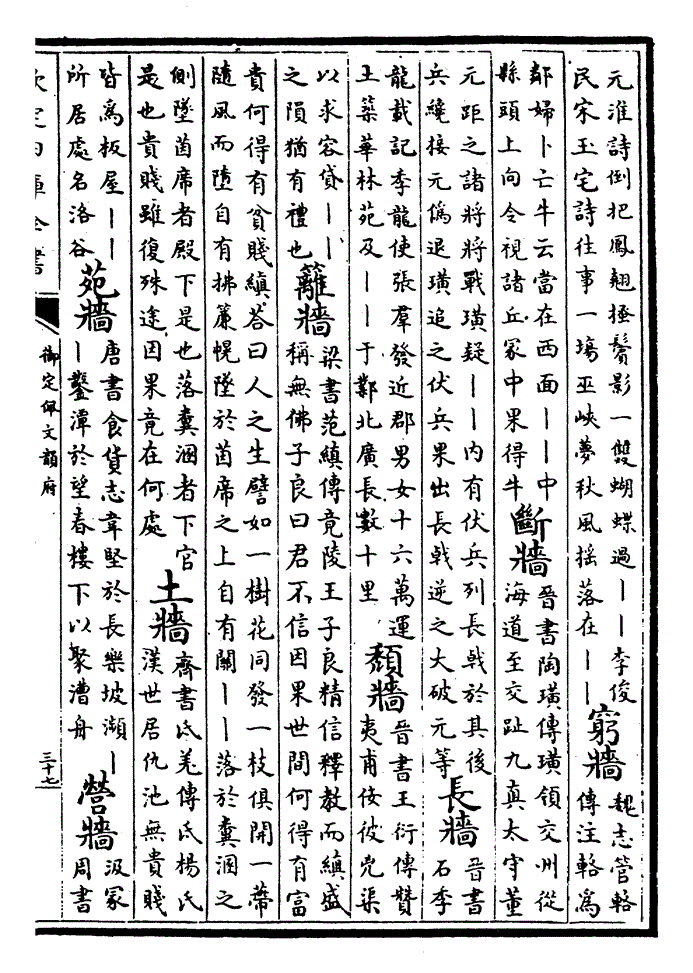 元淮詩倒把鳳翹搔鬢影一雙蝴蝶過丨丨李俊
民宋玉宅詩往事一塲巫峽夢秋風揺落在丨丨
窮牆
魏志管輅
傳注輅爲
鄰婦卜亡牛云當在西面丨丨中
縣頭上向令視諸丘冢中果得牛
斷牆
晉書陶璜傳璜領交州從
海道至交趾九真太守董
元距之諸將將戰璜疑丨丨内有伏兵列長戟於其後
兵繞接元僞退璜追之伏兵果出長戟逆之大破元等
長牆
晉書
石季
龍載記季龍使張羣發近郡男女十六萬運
土築華林苑及丨丨于鄴北廣長數十里
頽牆
晉書王衍傳贊
夷甫仗彼兇渠
以求容貸丨丨
之隕猶有禮也
籬牆
梁書范縝傳竟陵王子良精信釋教而縝盛
稱無佛子良曰君不信因果世間何得有富
貴何得有貧賤縝荅曰人之生譬如一樹花同發一枝俱開一蒂
隨風而墮自有拂簾幌墜於茵席之上自有關丨丨落於糞溷之
側墜茵席者殿下是也落糞溷者下官
是也貴賤雖復殊途因果竟在何處
土牆
齊書氐羌傳氐楊氏
漢世居仇池無貴賤
皆爲板屋丨丨
所居處名洛谷
苑牆
唐書食貨志韋堅於長樂坡瀕丨
丨鑿潭於望春樓下以聚漕舟
營牆
汲冢
周書
欽定四庫全書
御定佩文韻府
三十七